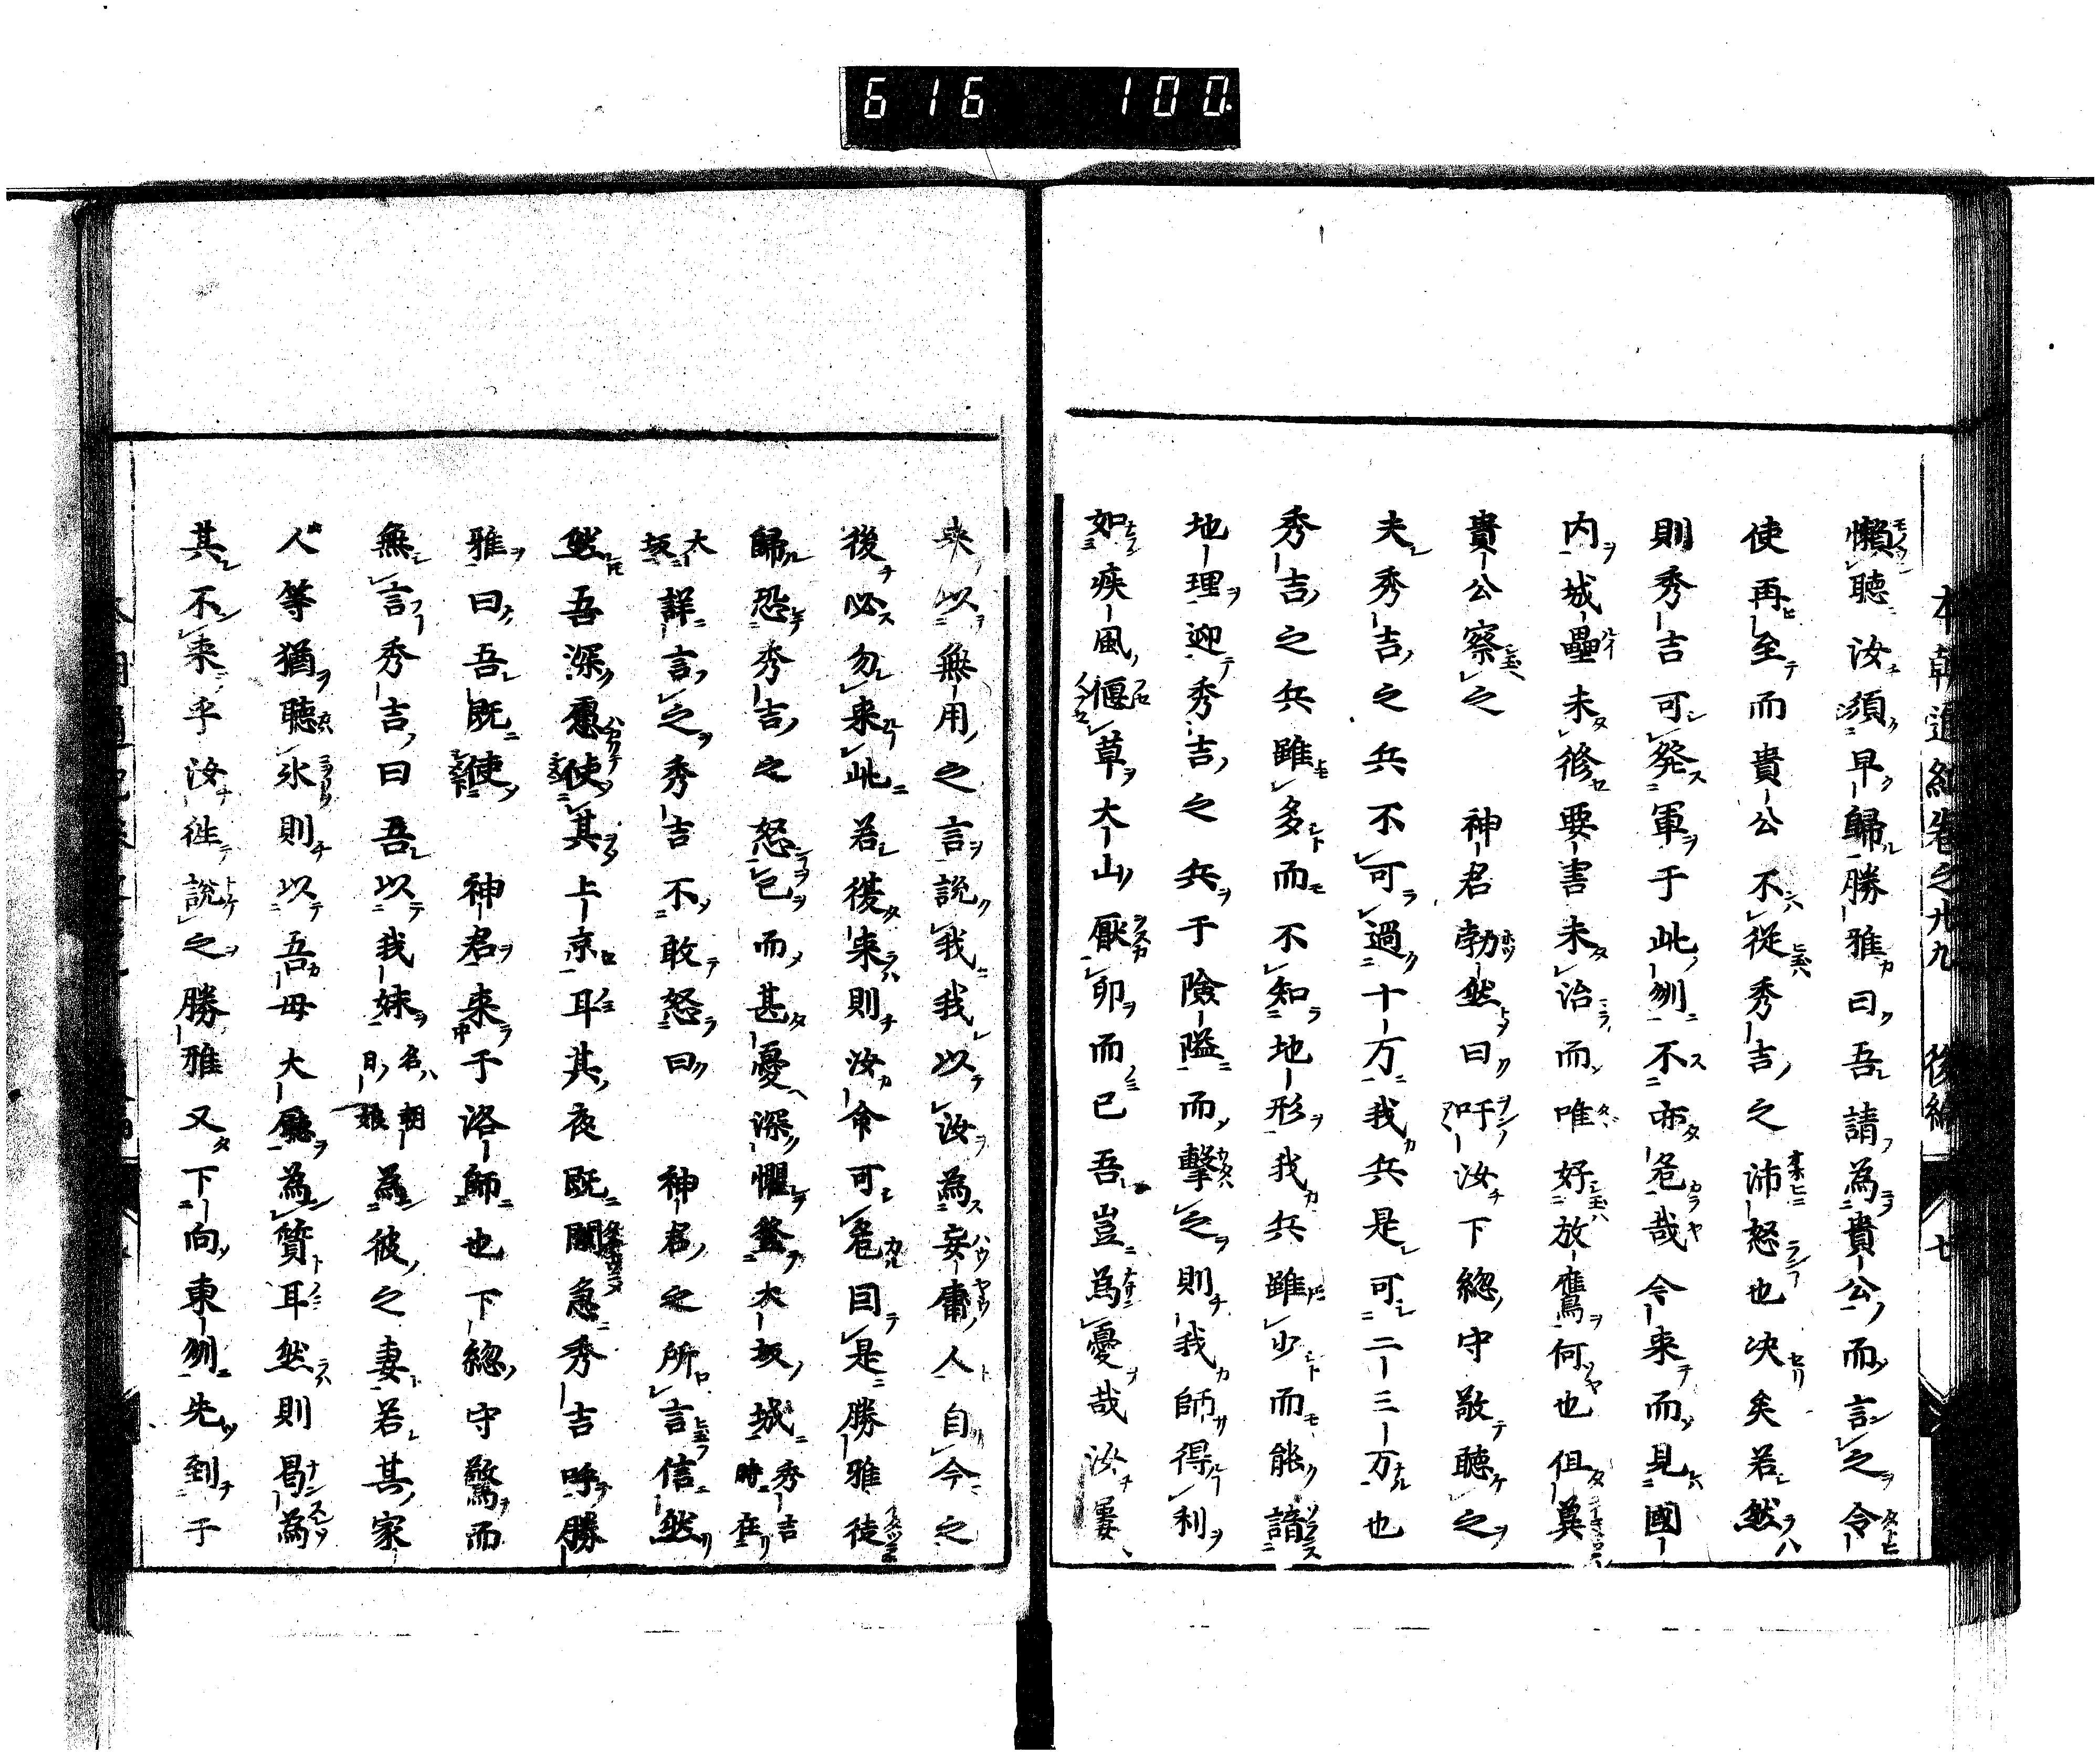 616 100
本朝通紀卷之廿九 後編 七
懶聽汝須早歸勝雅曰吾請為貴公而言之令
使再至而貴公不從秀吉之沛怒也決矣若然
則秀吉可発軍于此州不亦危哉令来而見國
内城壘未修要害未治而唯好放鷹何也伹冀
貴公察之 神君勃然曰吁汝下総守敬聴之
夫秀吉之兵不可過十万我兵是可二三万也
秀吉之兵雖多而不知地形我兵雖少而能諳
地理迎秀吉之兵于險隘而擊之則我師得利
如疾風偃草大山厭卵而已吾豈為憂哉汝屢
来以無用之言説我我以汝為妄庸人自今之
後必勿来此若復来則汝命可危因是勝雅徒
歸恐秀吉之怒己而甚憂深懼登大坂城秀吉時在
大坂詳言之秀吉不敢怒曰 神君之所言信然
然吾深慮使其上京耳其夜既闌急秀吉呼勝
雅曰吾既使 神君来于洛師也下総守驚而
無言秀吉曰吾以我妹名朝日娘為彼之妻若其家
人等猶聴氷則以吾母大廳為質耳然則曷為
其不来乎汝徃説之勝雅又下向東州先到于